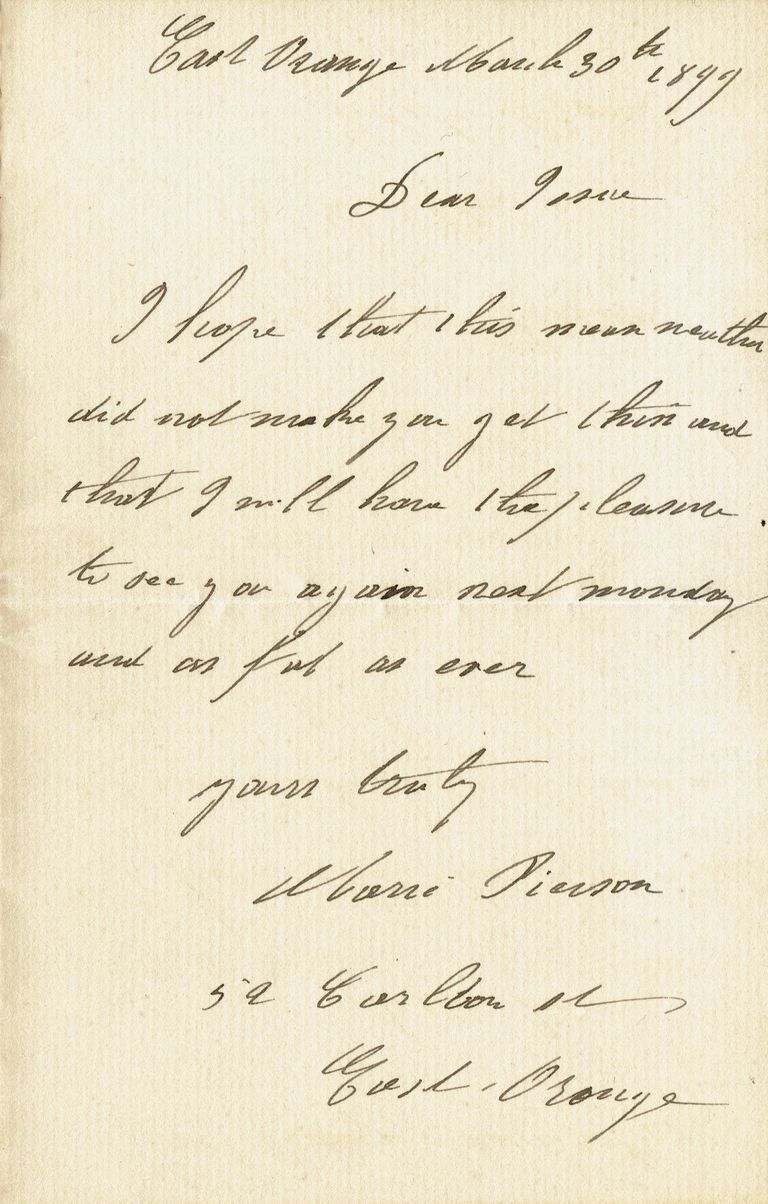 East Orange March 30th 1899
Dear
I hope that this mean weather
did not make you get thin and
that I will have the pleasure
to see you again next monday
and as fat as ever
yours truly
Marie Pierson
59 Carlton st
East Orange